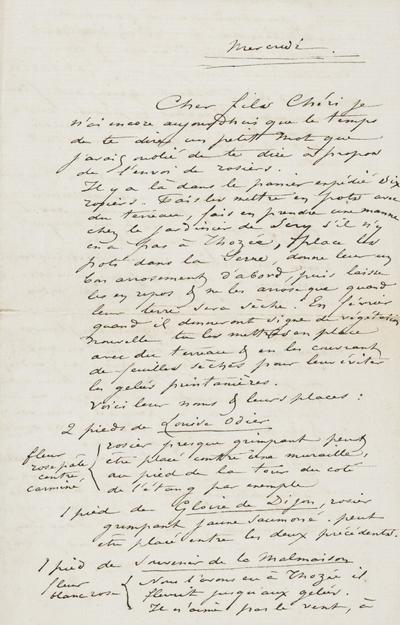 Mercredi.
Cher fils Chéri je
n'ai encore aujourd'hui que le temps
de te dire un petit mot que
j'avais oublié de te dire à propos
de l'envoi de rosiers.
Il y a là dans le panier expédié dix
rosiers. Fais les mettre en pots avec
du terreau, fais en prendre une manne
chez le jardinier de Sery s'il n'y
en a pas à Thozée, & place les
pots dans la Serre, donne leur un
bon arrosement d'abord, puis laisse
les en repos & ne les arrose que quand
leur terre sera sèche. En février
quand ils donneront signe de végétation
nouvelle tu les mettras en place
avec du terreau & en les couvrant
de feuilles sèches pour leur éviter
les gelées printanières.
Voici leur noms & leurs places :
2 pieds de Louise Odier
fleur
rose pâle
centre
carminé
rosier presque grimpant peut
être placé contre une muraille,
au pied de la tour du coté
de l'étang par exemple
1 pied de Gloire de Dijon, rosier
grimpant jaune saumoné. peut
être placé entre les deux précédents.
1 pied de Souvenir de la Malmaison
fleur
blanc rosé
Nous l'avons eu à Thozée il
fleurit jusqu'aux gelées.
Il n'aime pas le vent, à